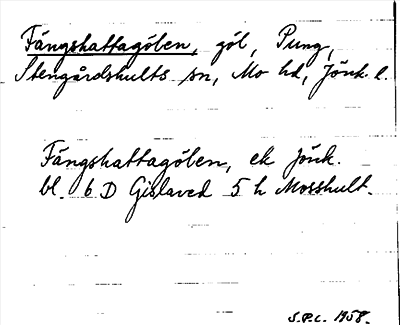 Fängshattagölen, göl, Pung,
Stengårdshults sn, Mo hd, Jönk. l.
Fängshattagölen, ek Jönk.
bl. 6 D Gislaved 5 h Mosshult.
S.P.L. 1958.